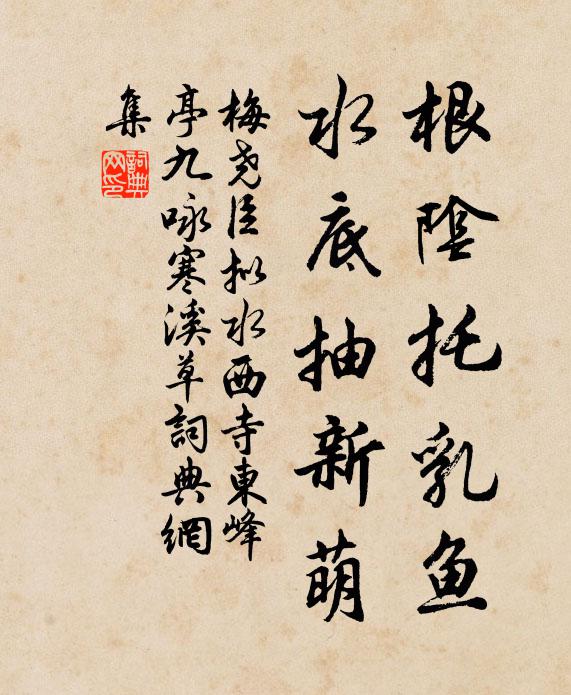 根陰托乳鱼
水底抽新萌
梅堯臣拟水西寺東峰
亭九咏寒溪草詞典網
集
詞典
网印